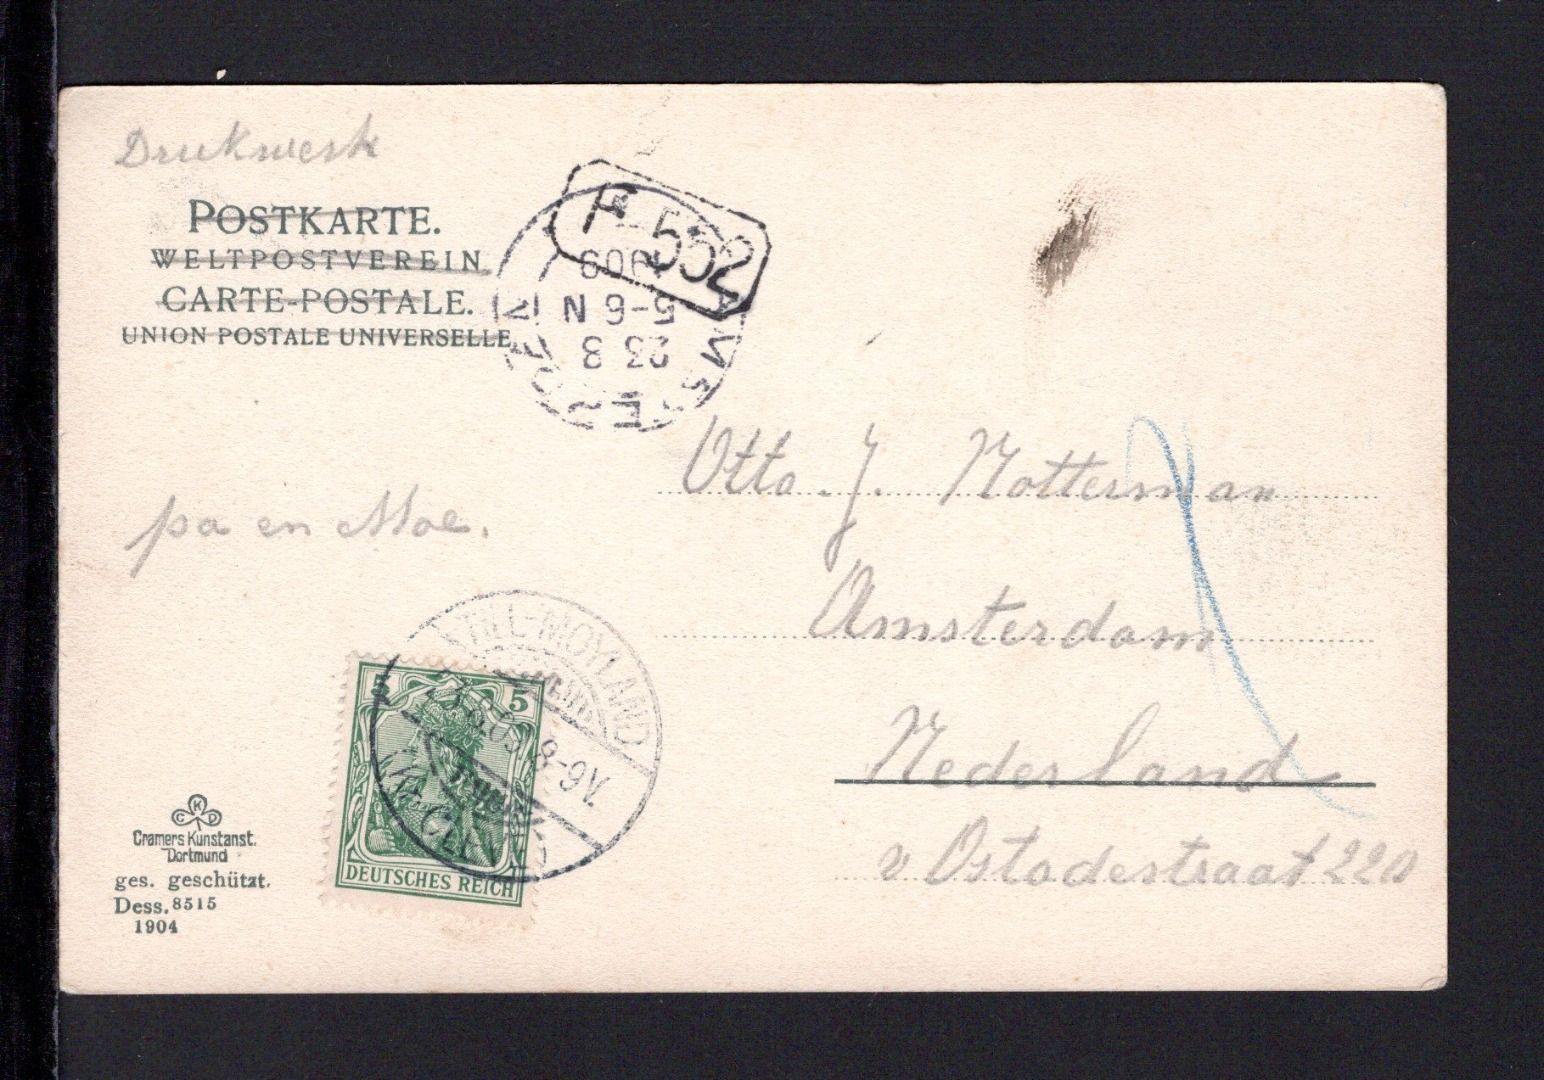 Drukwerk
POSTKARTE.
WELTPOSTVEREIN
CARTE-POSTALE.
UNION POSTALE UNIVERSELLE
F-552
1909
5-6 N
23 8
pa en Moe.
Otto J. Notterman
Amsterdam
Nederland
v Ostadestraat 220
TILL-MOYLAND
8-9V.
5
DEUTSCHES REICH
C K D
Cramers Kunstanst.
Dortmund
ges. geschützt.
Dess. 8515
1904